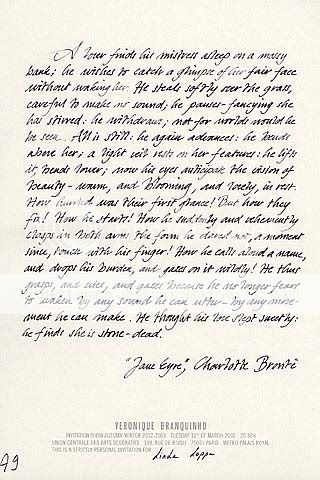 A lover finds his mistress asleep on a mossy
bank; he wishes to catch a glimpse of her fair face
without waking her. He steals softly over the grass,
careful to make no sound; he pauses - fancying she
has stirred: he withdraws; not for worlds would he
be seen. All is still: he again advances: he bends
above her; a light veil rests on her features: he lifts
it, bends lower; now his eyes anticipate the vision of
beauty - warm, and blooming, and lovely, in rest.
How hurried was their first glance! But how they
fix! How he starts! How he suddenly and vehemently
clasps in both arms the form he dared not, a moment
since, touch with his finger! How he calls aloud a name,
and drops his burden, and gazes on it wildly! He thus
grasps, and cries, and gazes because he no longer fears
to waken by any sound he can utter - by any move-
ment he can make. He thought his love slept sweetly:
he finds she is stone-dead.
"Jane Eyre", Charlotte Brontë
VERONIQUE BRANQUINHO
INVITATION SHOW AUTUMN-WINTER 2002-2003 TUESDAY 12TH OF MARCH 2002 20.30H
UNION CENTRALE DES ARTS DECORATIFS 109, RUE DE RIVOLI 75001 PARIS METRO PALAIS ROYAL
THIS IS A STRICTLY PERSONAL INVITATION FOR: Linda Loppa